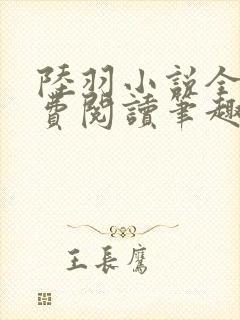 陸羽小說全
費閱讀筆趣
王長鷹